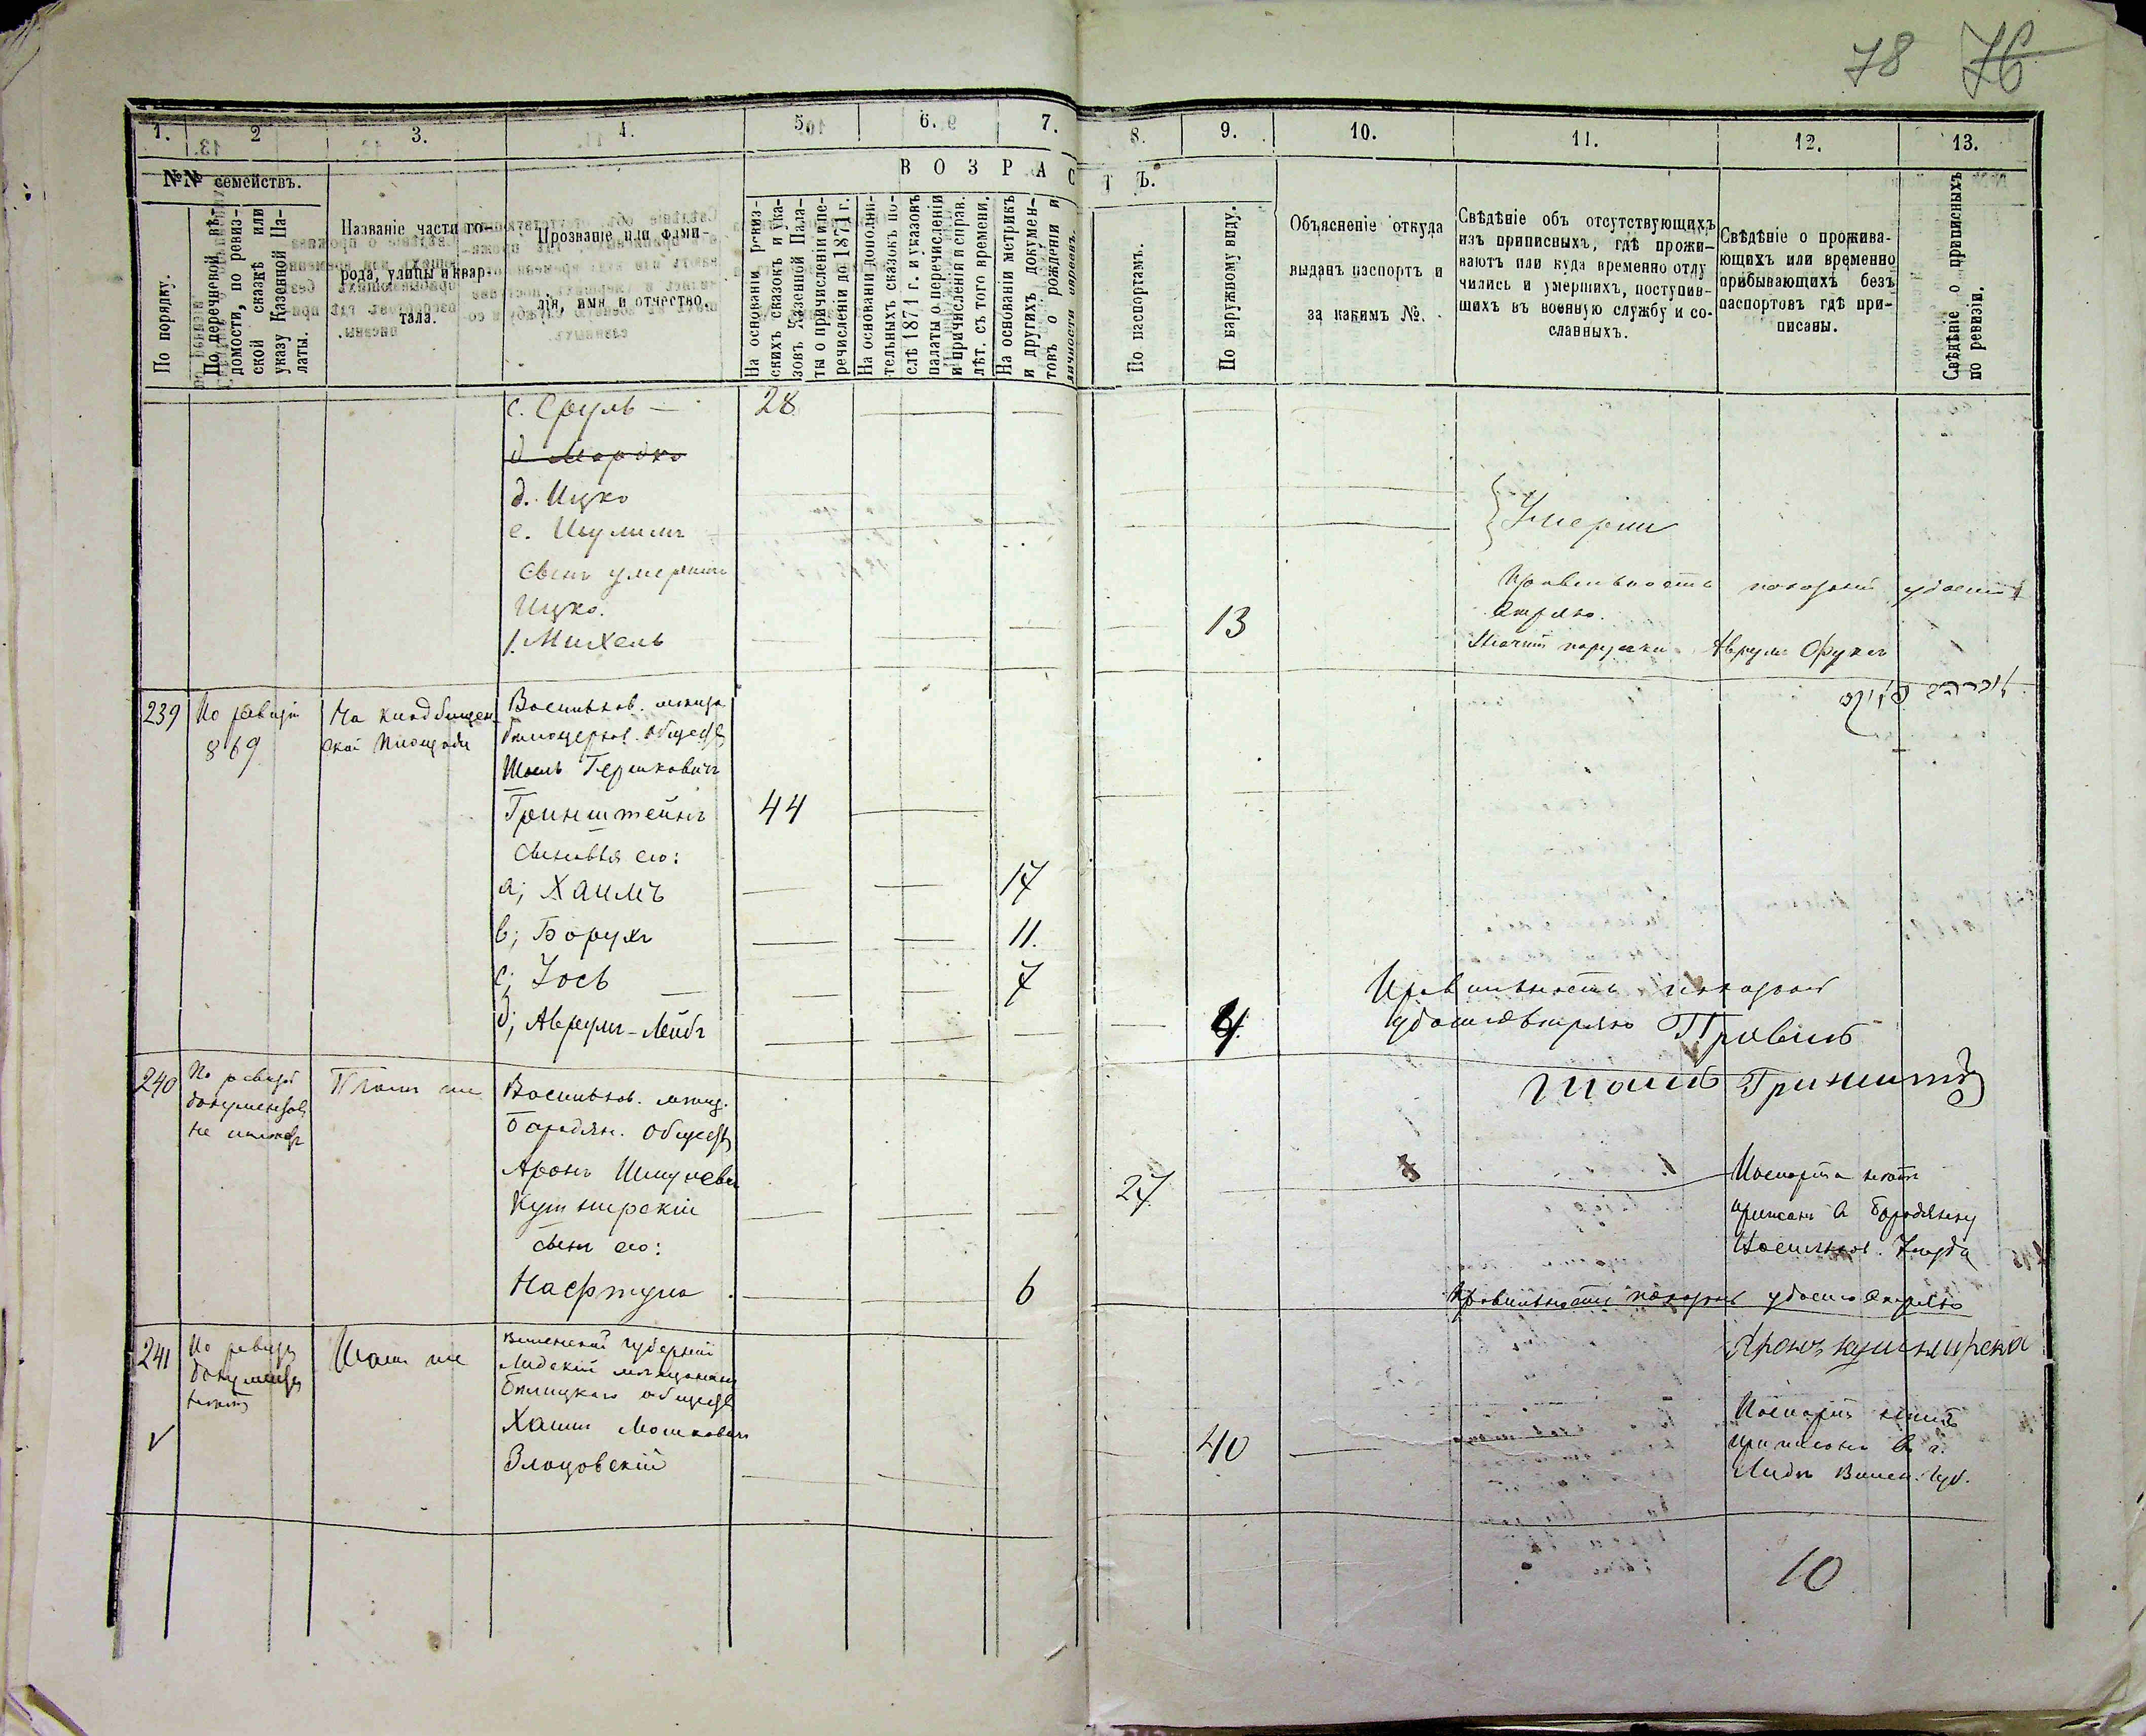 78 76
1. 2 3. 4. 5. 6. 7. 8. 9. 10. 11. 12. 13.
№№ семействъ.
ВОЗРАСТЪ.
По порядку.
По перечневой вѣ-
домости, по ревиз-
ской сказкѣ или
указу Казенной Па-
латы.
Названіе части го-
рода, улицы и квар-
тала.
Прозваніе или фами-
лія, имя и отчество.
На основаніи ревиз-
скихъ сказокъ и ука-
зовъ Казенной Пала-
ты о причисленіи и пе-
речисленіи до 1871 г.
На основаніи дополни-
тельныхъ сказокъ по-
слѣ 1871 г. и указовъ
палаты о перечисленіи
и причисленія и справ.
лѣт. съ того времени.
На основаніи метрикъ
и другихъ докумен-
товъ о рожденіи и
личности евреевъ.
По паспортамъ.
По наружному виду.
Объясненіе откуда
выданъ паспортъ и
за какимъ №.
Свѣдѣніе объ отсутствующихъ
изъ приписныхъ, гдѣ прожи-
ваютъ или куда временно отлу
чились и умершихъ, поступив-
шихъ въ военную службу и со-
сланныхъ.
Свѣдѣніе о прожива-
ющихъ или временно
прибывающихъ безъ
паспортовъ гдѣ при-
писаны.
Свѣдѣніе о приписныхъ
по ревизіи.
с. Сруль — 28
д Мордко
д. Ицко
е. Шулимъ
Умерли
Сынъ умершаго
Ицко.
1. Михель 13
Правильность показаній удосто
вѣряю.
Аврумъ
239 По ревизіи
869
На кладбищен-
ской площади
Васильков. мѣщ.
Бѣлоцерков. Общест
Шоель Гершковичъ
Гринштейнъ 44
сыновья его:
а; Хаимъ 17
в; Борухъ 11.
с; Іось 7
д; Аврумъ-Лейбъ 4
Правильность показаній
удостовѣряю
240 По ревизіи
документовъ
не имѣетъ
Тамъ же
Васильков. мѣщ.
Бородян. Общест
Аронъ Шмулев
Кушнирскій 27
сынъ его:
Нафтула 6
Паспорта нѣтъ
приписанъ в Бородянку
Васильков. уѣзда
Правильность показаній удостовѣряю
Аронъ кушнирска
241 По ревизіи
документовъ
нѣтъ
Тамъ же
Виленской губерніи
Лидскій мѣщанинъ
Бѣлицкаго общест
Хаимъ Мошковичъ
Злоцовскій 40
Паспорта нѣтъ
приписанъ въ г.
Лидѣ Вилен. губ.
10